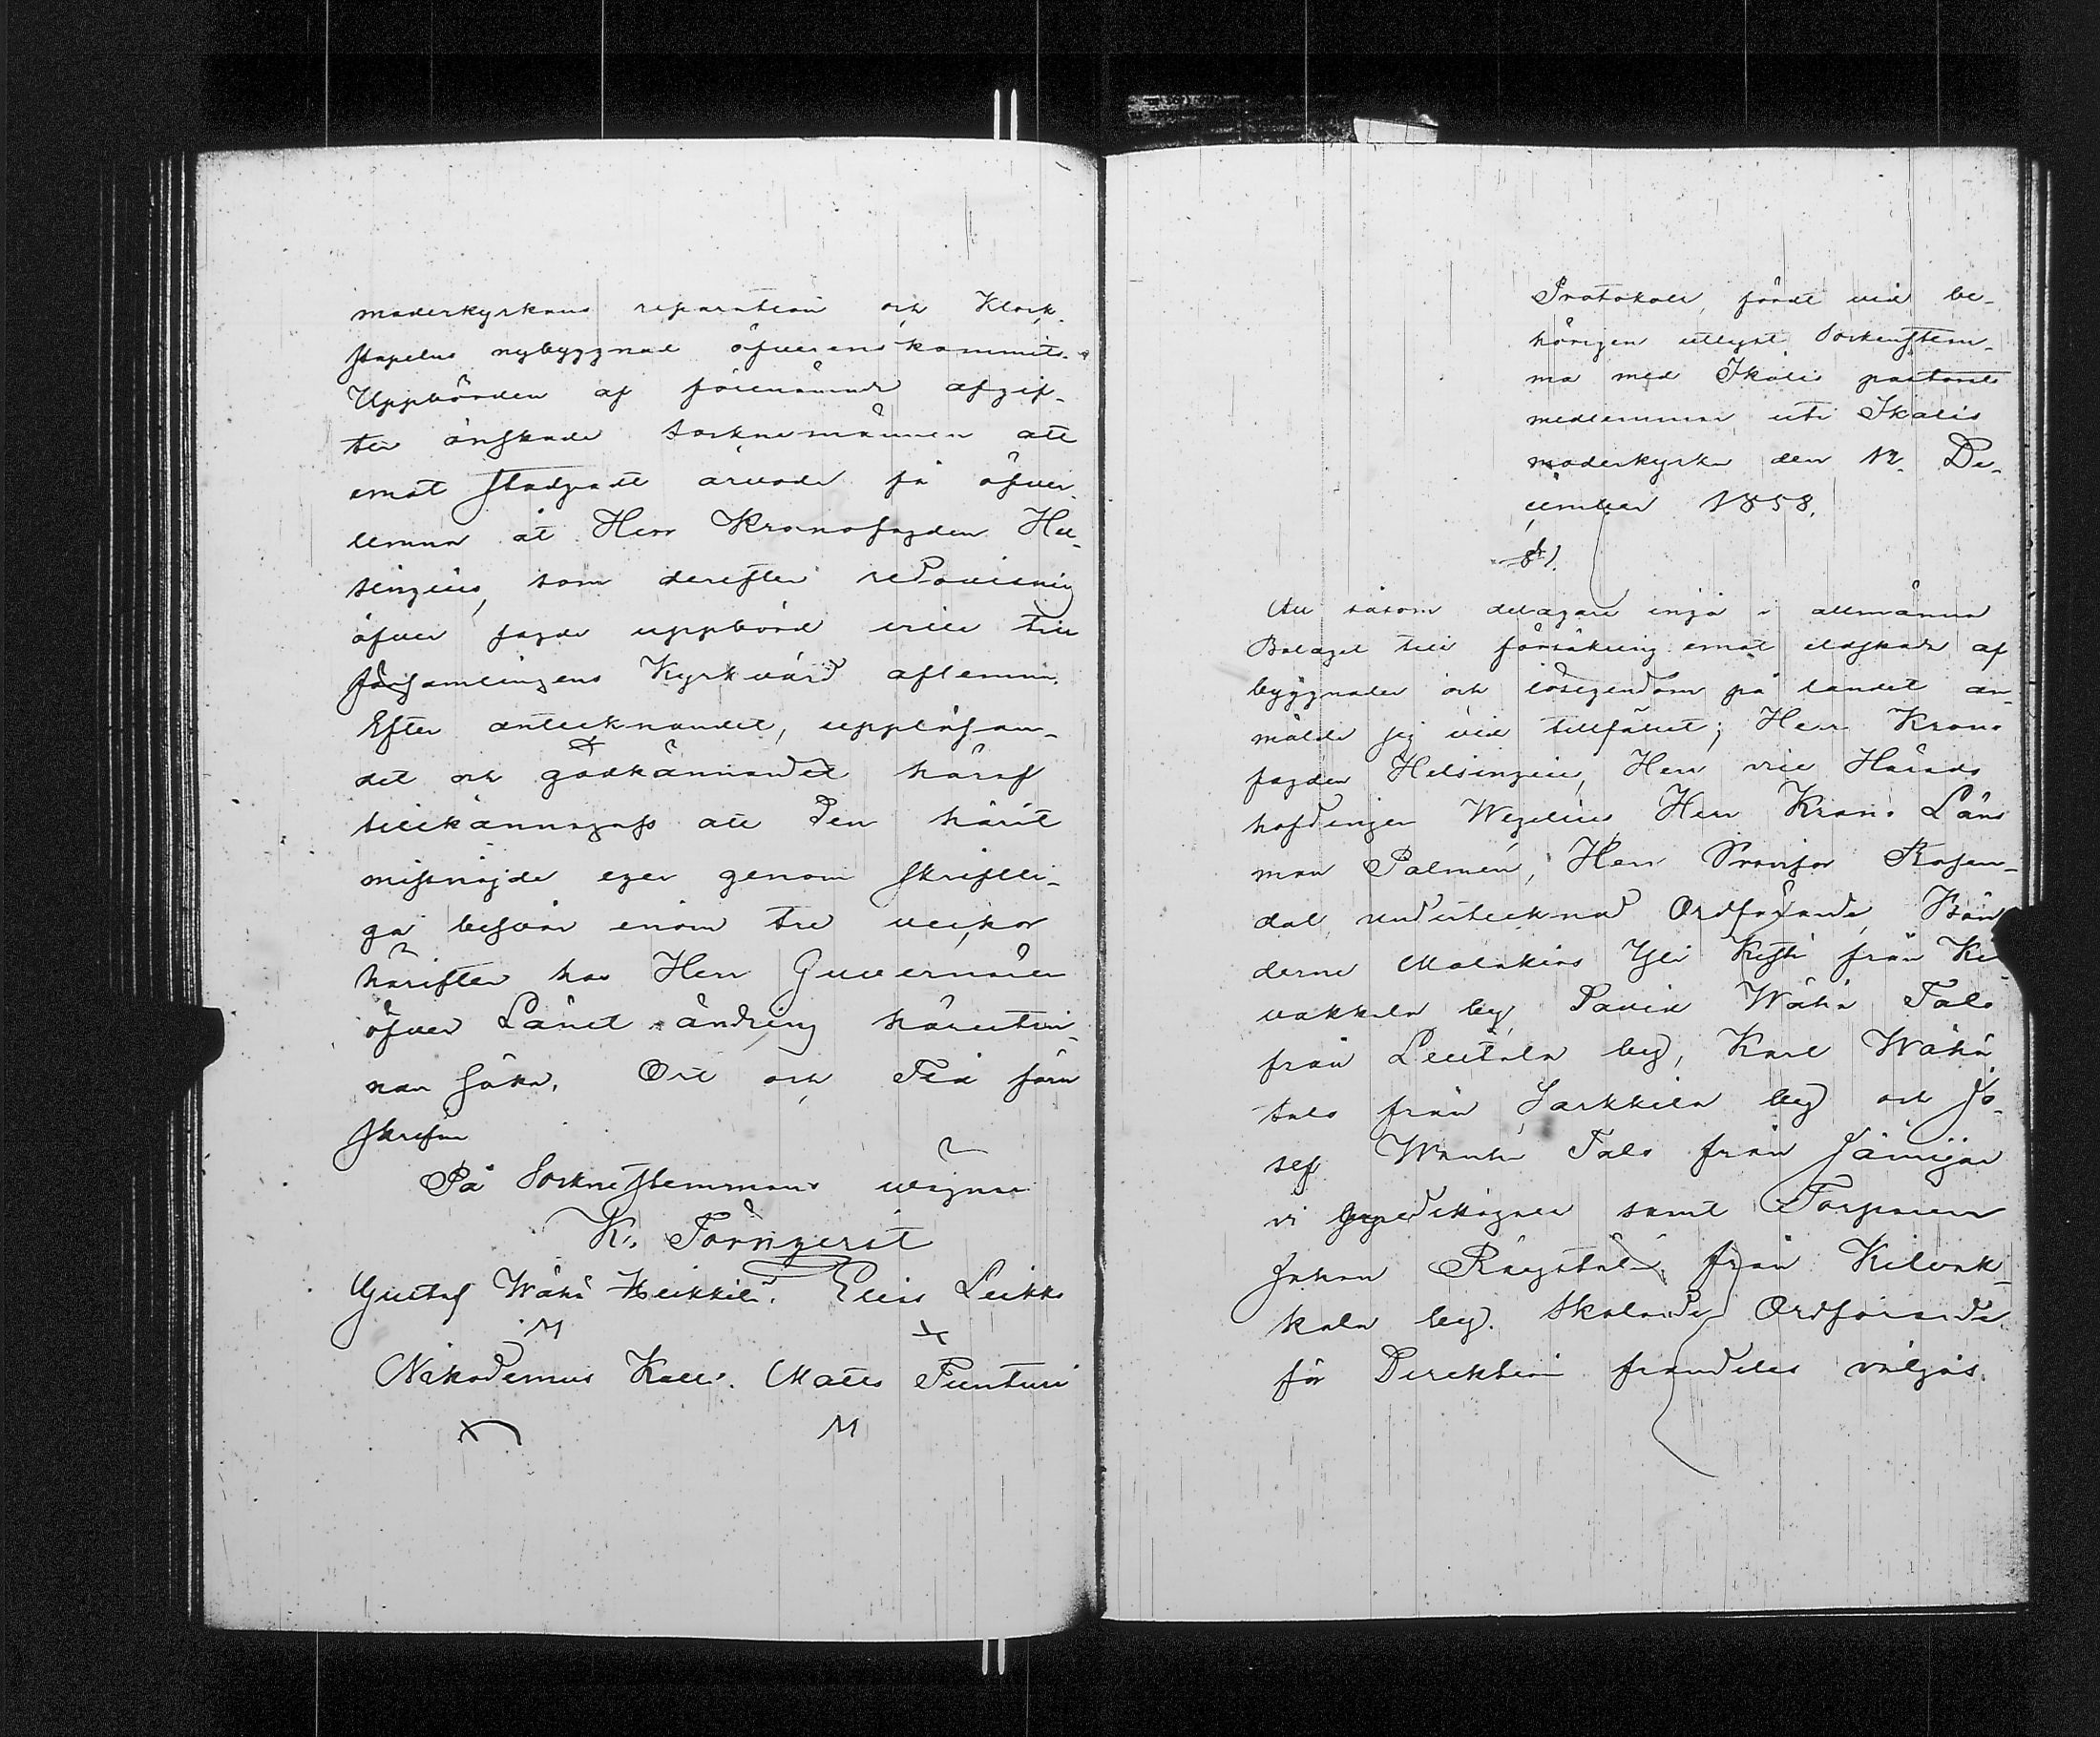 moderkyrkans reparation och Klock-
stapelns nybyggnad öfverenskommits.
Uppbörden af förenämnde afgif-
ter önskade Socknemännen att
emot stadgadt arvode få öfver-
lemna åt Herr Kronofogden Hel-
singius, som derefter redovisning
öfver sagde uppbörd ville till
församlingens Kyrkvärd aflemna.
Efter antecknandet, uppläsan-
det och godkännandet häraf
tillkännagafs att den härit
missnöjde eger genom skriftli-
ga besvär inom tre veckor
härefter hos Herr Guvernören
öfver Länet ändring härutin-
nan söka. Ort och Tid förr
skrefne
På Sockne Stemmans vägnar
K. Törnqerist
Gustaf Wähä Heikkilä. Elias Leikko
M
Nikodemus Kalli. Matts Puntari
M
Protokoll, fördt vid be-
hörigen utlyst Sockenstem-
ma med Ikalis pastorats
medlemmar uti Ikalis
moderkyrka den 12 De-
cember 1858.
§ 1.
Att såsom delägare ingå i allmänna
Bolaget till försäkring emot eldskada af
byggnader och lösegendom på landet an-
mälde sig vid tillfället; Herr Krono
fogden Helsingius, Herr vice Härads
höfdingen Wegelius Herr Krono Läns
man Palmén, Herr Provisor Rosen-
dal, undertecknad Ordförande, Bön
derne Malakias Yli Kesti från Ki
vakkala by, David Wähä Talo
från Leutala by, Karl Wähä
talo från Sarkkila by och Jo-
sef Wanha Talo från Jämijär
vi samt Torparen
Johan från Kilvak-
kala by. Skolande Ordförande
för Direktion framdeles väljas.